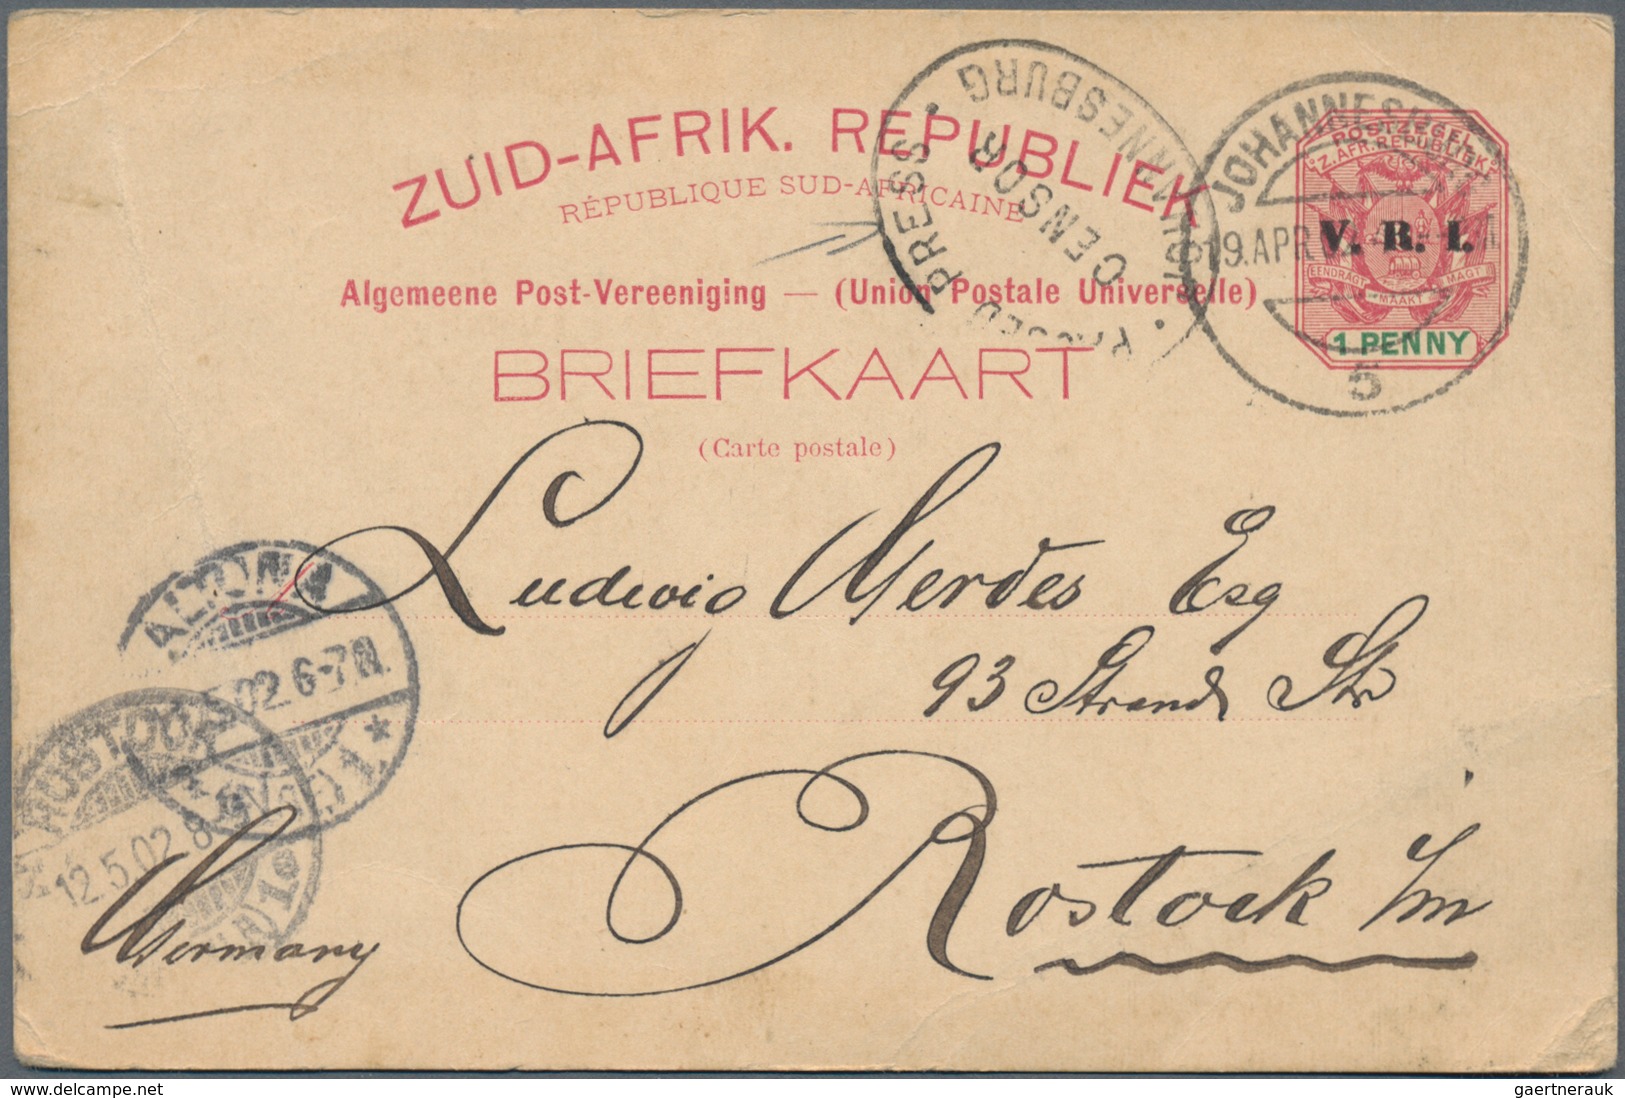 ZUID-AFRIK. REPUBLIEK
RÉPUBLIQUE SUD-AFRICAINE
Algemeene Post-Vereeniging — (Union Postale Universelle)
BRIEFKAART
(Carte postale)
PASSED PRESS • JOHANNESBURG •
CENSOR
JOHANNESBURG
19.APR
5
POSTZEGEL
Z. AFR. REPUBLIEK
V. R. I.
EENDRAGT MAAKT MAGT
1 PENNY
Ludwig Gerdes Esq
93 Strand Str
Rostock I/m
Germany
ALTONA
5.02. 6-7N.
* 1 *
ROSTOCK
12.5.02. 8
1
delcampe.net
gaertnerauk